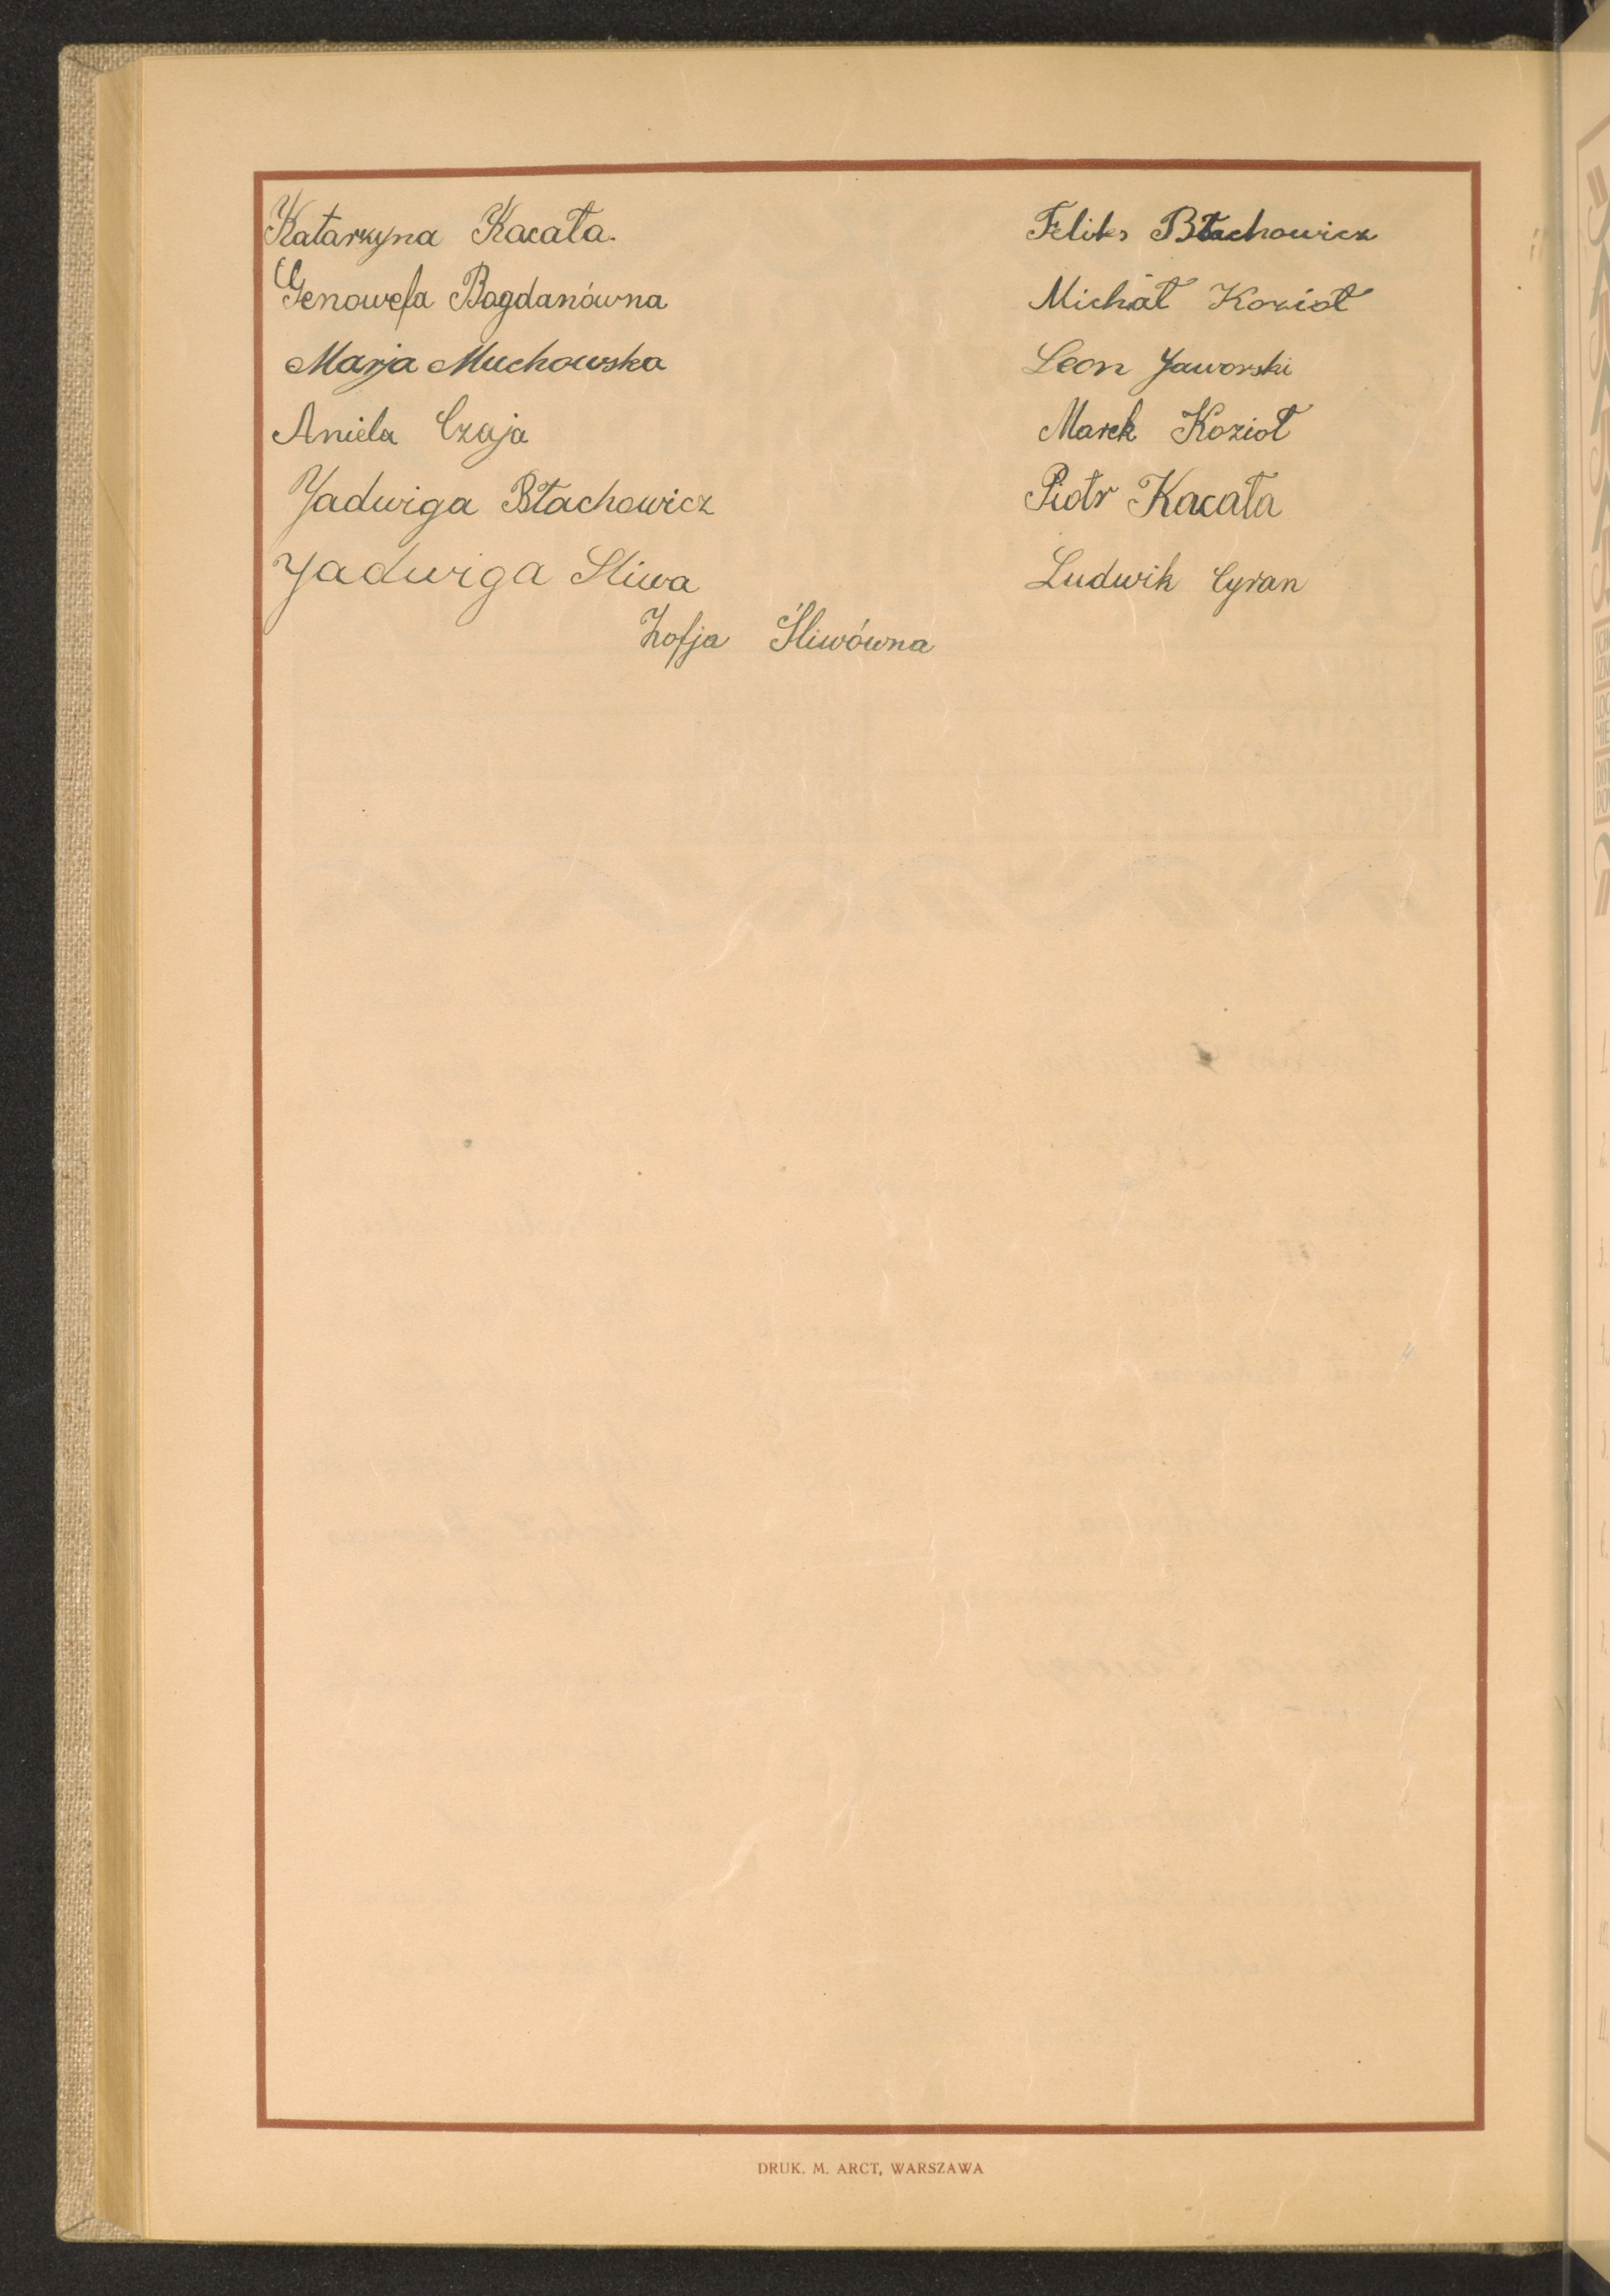 Katarzyna Kacała.
Genowefa Bogdanówna
Marja Muchowska
Aniela Czaja
Jadwiga Błachowicz
Jadwiga Śliwa
Feliks Błachowicz
Michał Kozioł
Leon Jaworski
Marek Kozioł
Piotr Kacała
Ludwik Cyran
Zofja Śliwówna
DRUK. M. ARCT, WARSZAWA